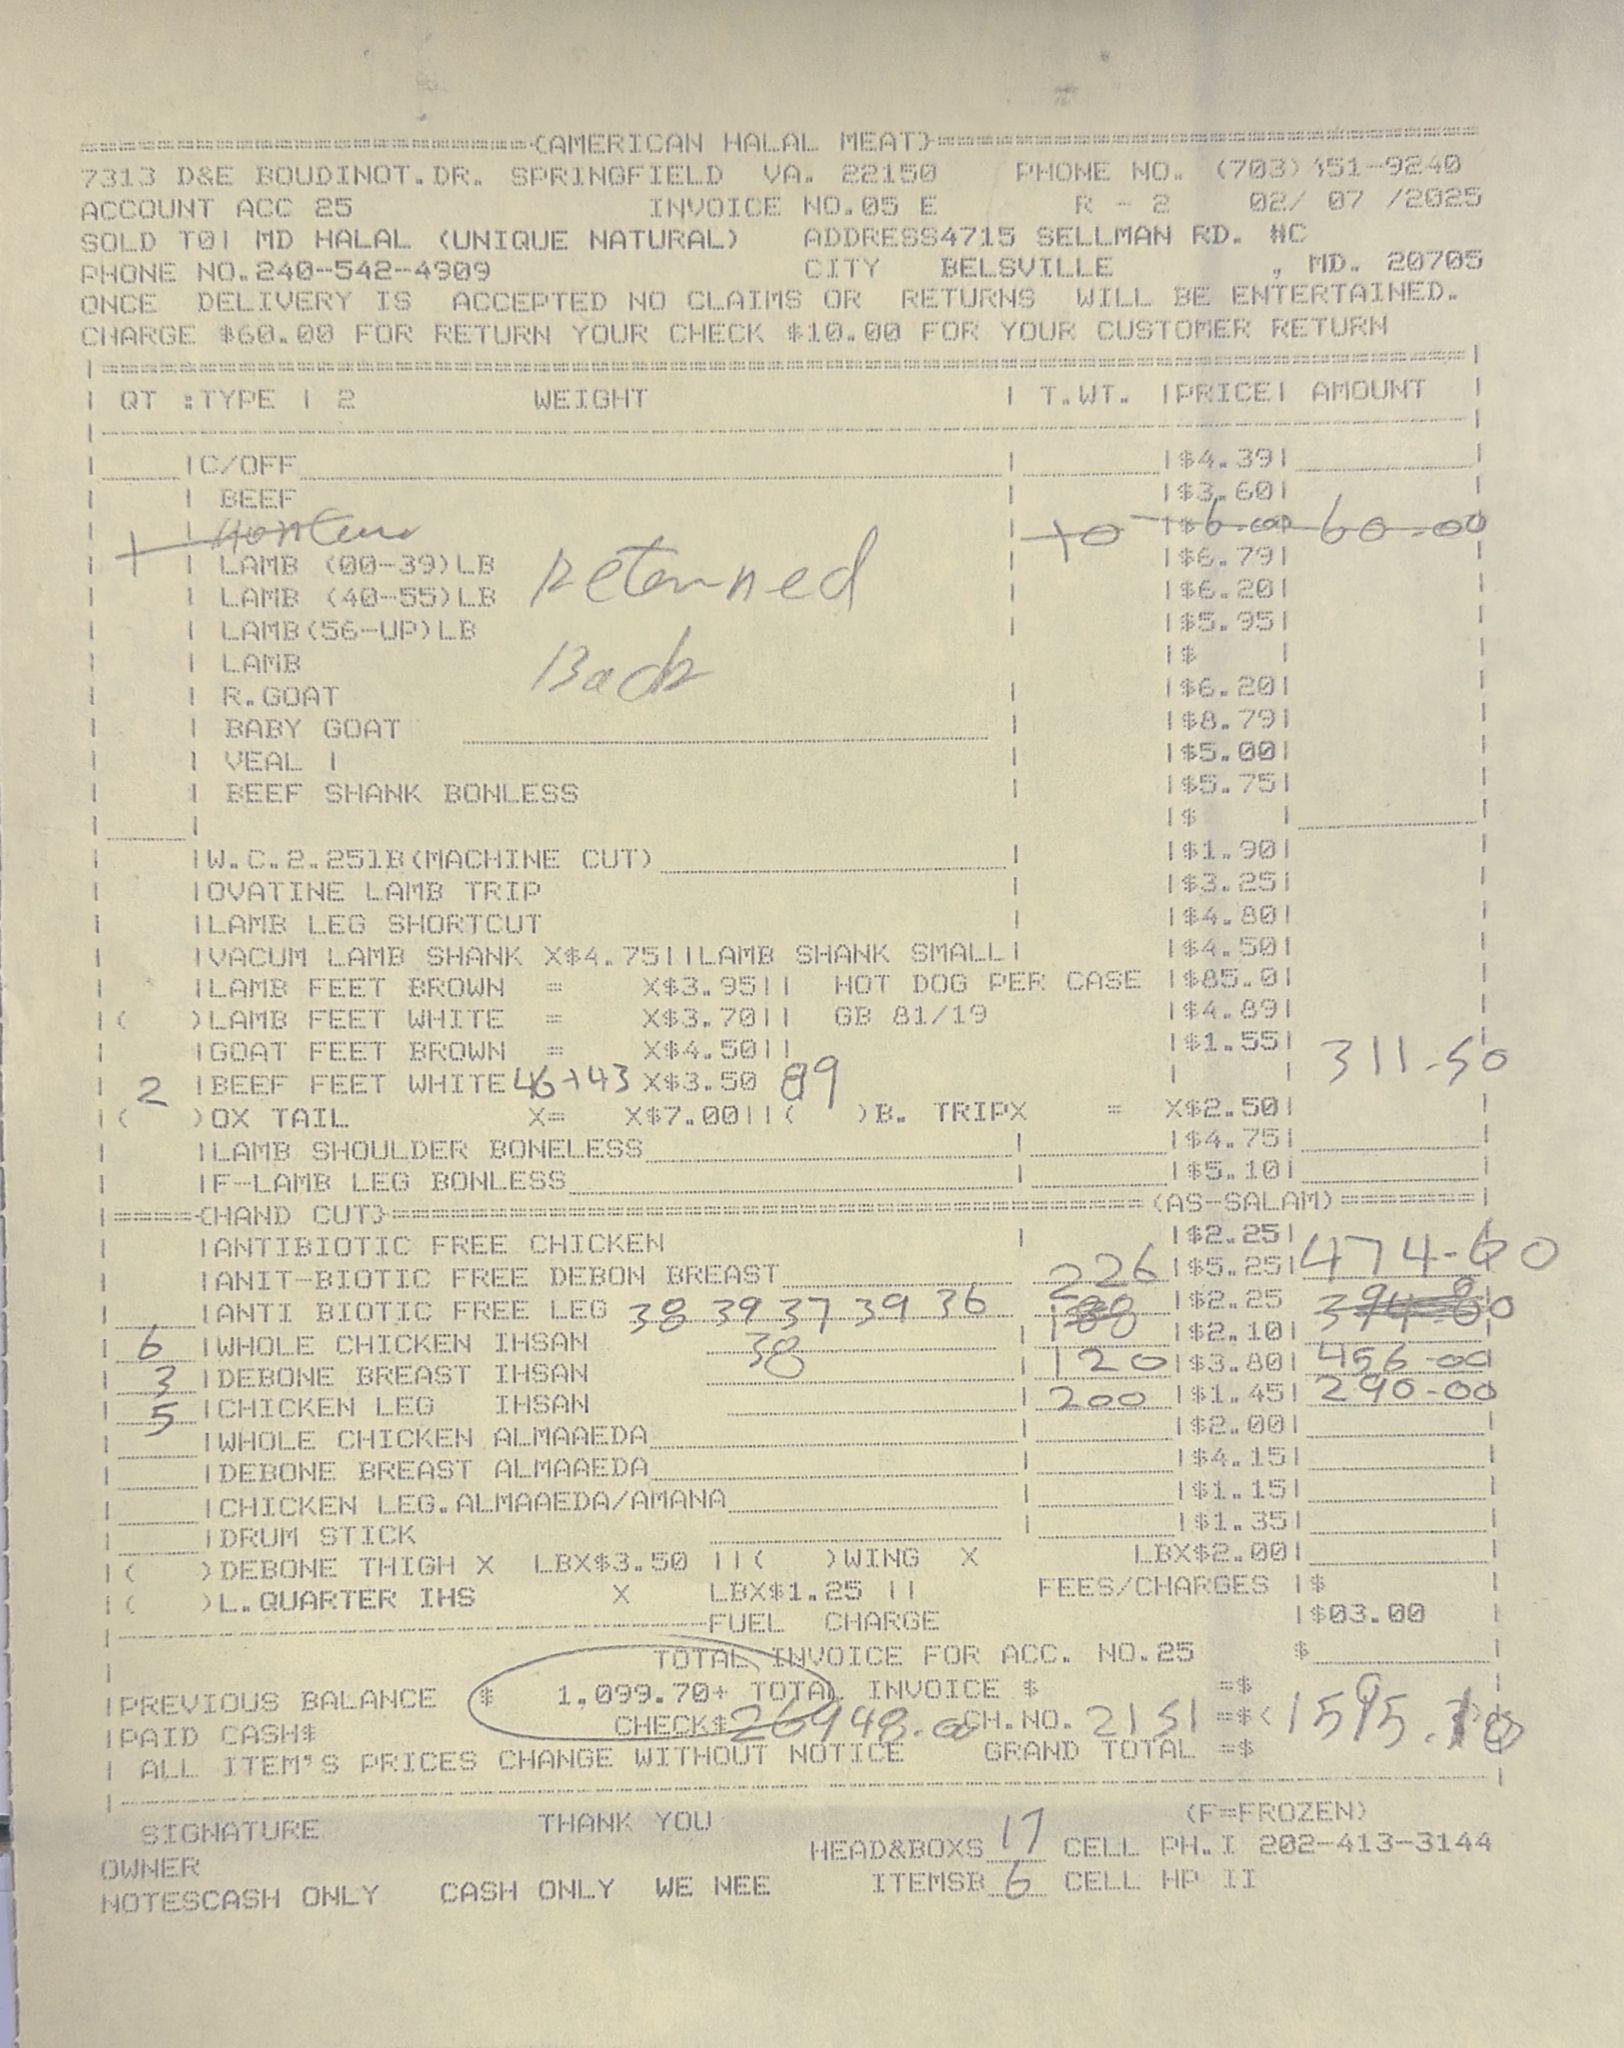 ===================={AMERICAN HALAL MEAT}========================
7313 D&E BOUDINOT.DR. SPRINGFIELD VA. 22150 PHONE NO. (703) 451-9240
ACCOUNT ACC 25 INVOICE NO.05 E R - 2 02/ 07 /2025
SOLD TO| MD HALAL (UNIQUE NATURAL) ADDRESS4715 SELLMAN RD. #C
PHONE NO.240-542-4909 CITY BELSVILLE , MD. 20705
ONCE DELIVERY IS ACCEPTED NO CLAIMS OR RETURNS WILL BE ENTERTAINED.
CHARGE $60.00 FOR RETURN YOUR CHECK $10.00 FOR YOUR CUSTOMER RETURN
QT :TYPE | 2 WEIGHT | T.WT. |PRICE| AMOUNT
|C/OFF |$4.39|
| BEEF |$3.60|
1 10 $6.00 60.00
| LAMB (00-39)LB Returned |$6.79|
| LAMB (40-55)LB |$6.20|
| LAMB(56-UP)LB |$5.95|
| LAMB Back |$ |
| R.GOAT |$6.20|
| BABY GOAT |$8.79|
| VEAL | |$5.00|
| BEEF SHANK BONLESS |$5.75|
| |$ |
|W.C.2.25lB(MACHINE CUT) |$1.90|
|OVATINE LAMB TRIP |$3.25|
|LAMB LEG SHORTCUT |$4.80|
|VACUM LAMB SHANK X$4.75||LAMB SHANK SMALL| |$4.50|
|LAMB FEET BROWN = X$3.95|| HOT DOG PER CASE |$85.0|
|( )LAMB FEET WHITE = X$3.70|| GB 81/19 |$4.89|
|GOAT FEET BROWN = X$4.50|| |$1.55|
2 |BEEF FEET WHITE 46+43 X$3.50 89 | | 311.50
|( )OX TAIL X= X$7.00||( )B. TRIPX = X$2.50|
|LAMB SHOULDER BONELESS |$4.75|
|F-LAMB LEG BONLESS |$5.10|
|====={HAND CUT}=====================================(AS-SALAM)=======|
|ANTIBIOTIC FREE CHICKEN |$2.25|
|ANIT-BIOTIC FREE DEBON BREAST 226 |$5.25| 474-60
|ANTI BIOTIC FREE LEG 38 39 37 39 36 188 |$2.25 394.80
6 |WHOLE CHICKEN IHSAN 38 |$2.10|
3 |DEBONE BREAST IHSAN 120 |$3.80| 456-00
5 |CHICKEN LEG IHSAN 200 |$1.45| 290-00
|WHOLE CHICKEN ALMAAEDA |$2.00|
|DEBONE BREAST ALMAAEDA |$4.15|
|CHICKEN LEG.ALMAAEDA/AMANA |$1.15|
|DRUM STICK |$1.35|
|( )DEBONE THIGH X LBX$3.50 ||( )WING X LBX$2.00|
|( )L.QUARTER IHS X LBX$1.25 || FEES/CHARGES |$
FUEL CHARGE |$03.00
TOTAL INVOICE FOR ACC. NO.25 $
|PREVIOUS BALANCE $ 1,099.70+ TOTAL INVOICE $ =$
|PAID CASH$ CHECK$ CH.NO. 2151 =$<
| ALL ITEM'S PRICES CHANGE WITHOUT NOTICE GRAND TOTAL =$
SIGNATURE THANK YOU (F=FROZEN)
HEAD&BOXS 17 CELL PH.I 202-413-3144
OWNER
ITEMSB 6 CELL HP II
NOTESCASH ONLY CASH ONLY WE NEE